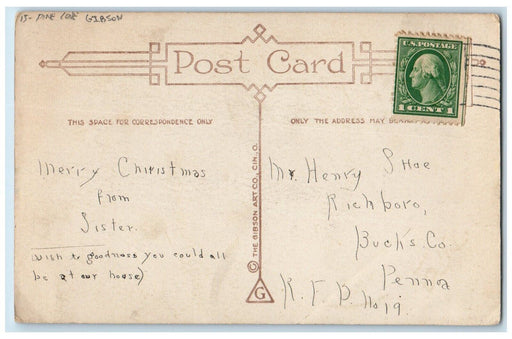 15- PINE CONE GIBSON
Post Card
U.S. POSTAGE
1 CENT 1
THIS SPACE FOR CORRESPONDENCE ONLY
ONLY THE ADDRESS MAY BE
Merry Christmas
from
Sister.
Wish to goodness you could all
be at our house)
© THE GIBSON ART CO., CIN. O.
G
Mr. Henry Shoe
Richboro,
Bucks. Co.
Penna
R. F. D. No 19.